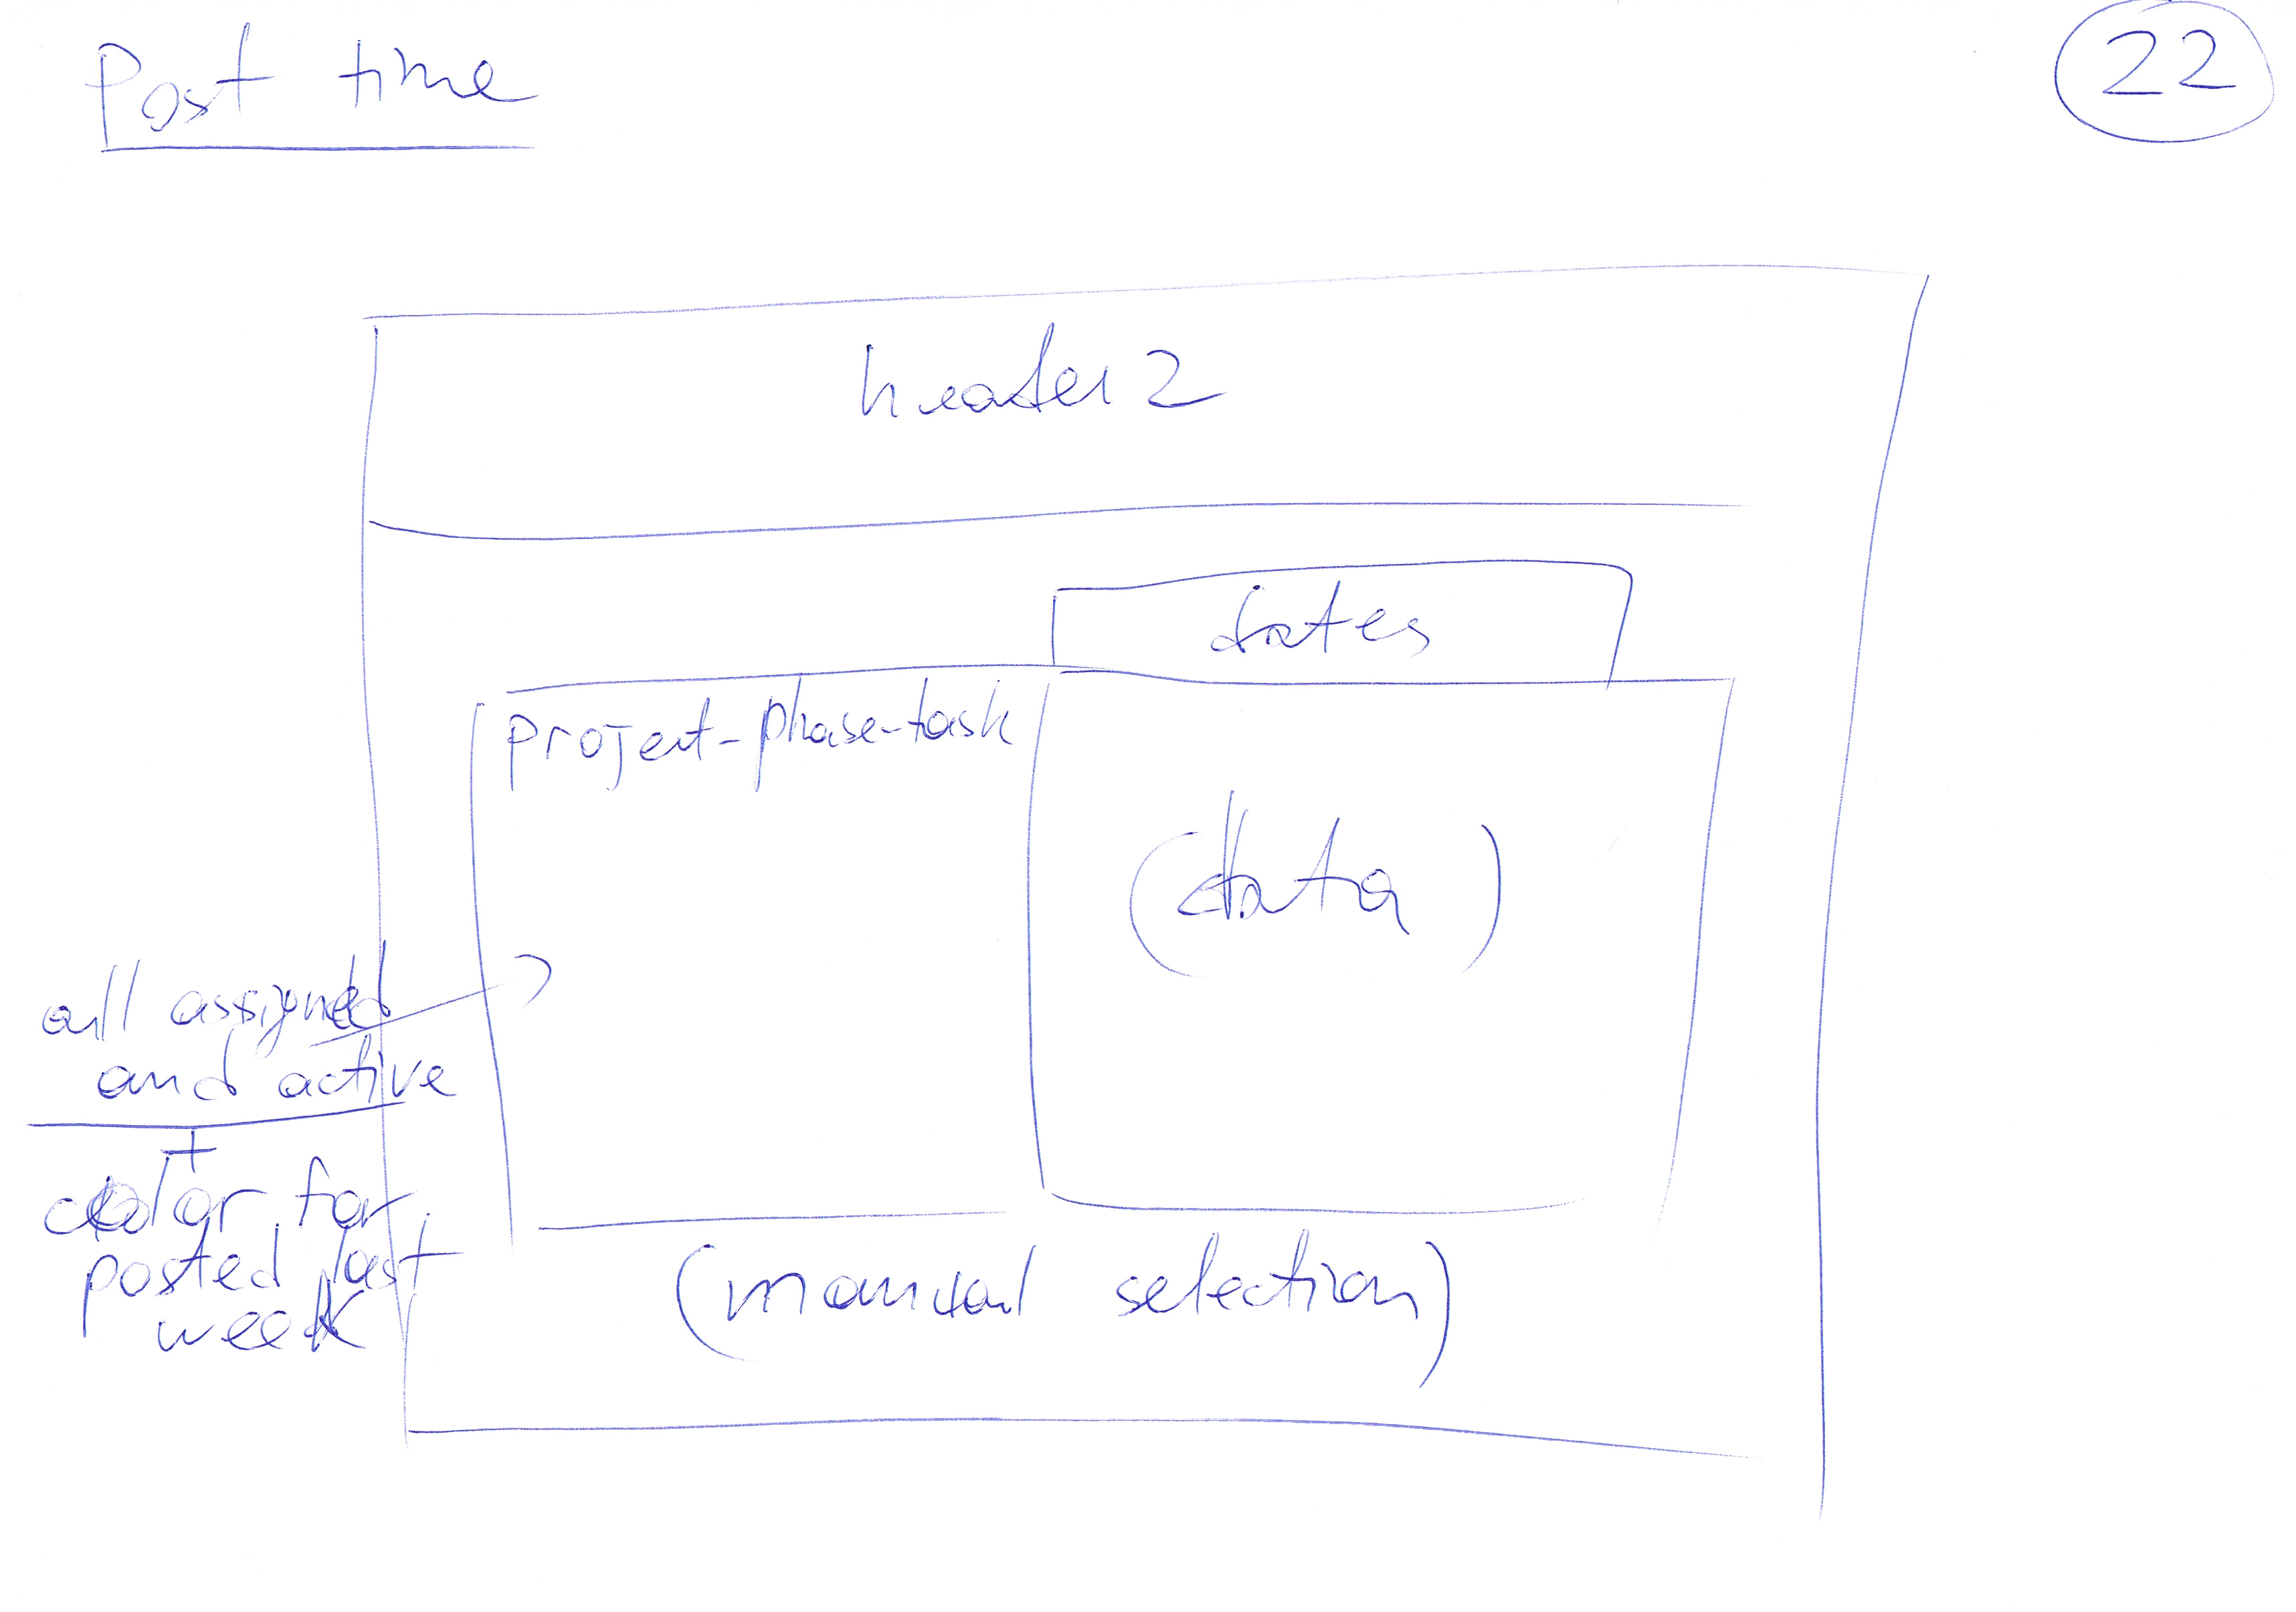 Post time
22
header2
dates
project-phase-task
(data)
all assigned
and active
+
color for
posted last
week
(manual selection)